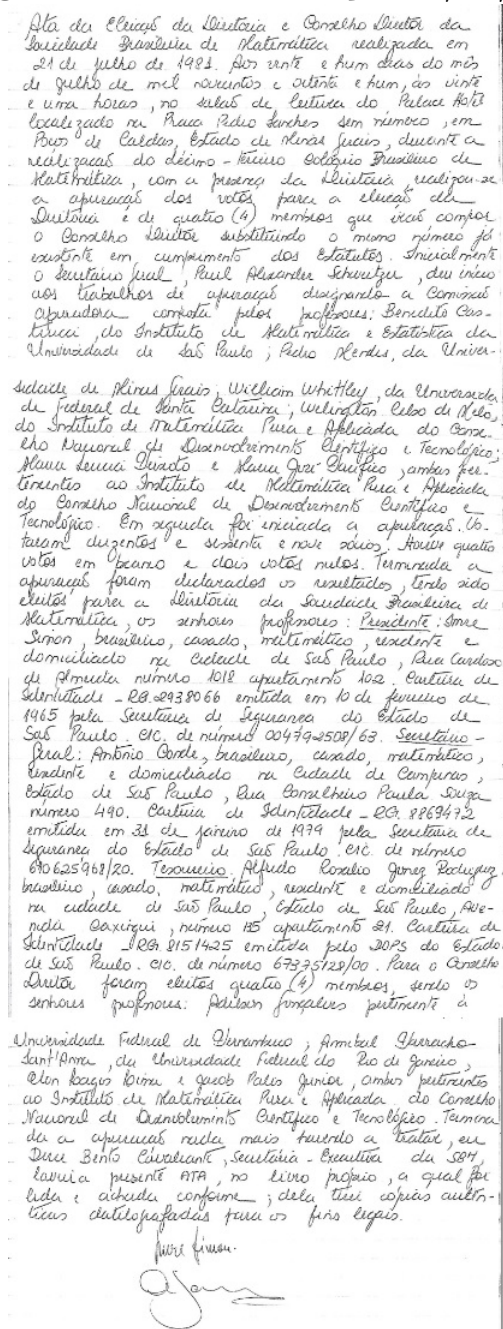 Ata da Eleição da Diretoria e Conselho Diretor da
Sociedade Brasileira de Matemática realizada em
21 de julho de 1981. Aos vinte e hum dias do mês
de julho de mil novecentos e oitenta e hum, às vinte
e uma horas, no salão de leitura do Palace Hotel
localizado na Praça Pedro Sanches sem número, em
Poços de Caldas, Estado de Minas Gerais, durante a
realização do décimo-terceiro Colóquio Brasileiro de
Matemática, com a presença da Diretoria, realizou-se
a apuração dos votos para a eleição da
Diretoria e de quatro (4) membros que irão compor
o Conselho Diretor substituindo o mesmo número já
existente em cumprimento dos Estatutos. Inicialmente
o Secretário Geral, Paul Alexander Schweitzer, deu início
aos trabalhos de apuração designando a Comissão
apuradora composta pelos professores: Benedito Cas-
trucci, do Instituto de Matemática e Estatística da
Universidade de São Paulo; Pedro Mendes, da Univer-
sidade de Minas Gerais; William Whitley, da Universida
de Federal de Santa Catarina; Welington Celso de Melo
do Instituto de Matemática Pura e Aplicada do Conse-
lho Nacional de Desenvolvimento Científico e Tecnológico;
Maria Lucia e Maria José Pacífico, ambas per-
tencentes ao Instituto de Matemática Pura e Aplicada
do Conselho Nacional de Desenvolvimento Científico e
Tecnológico. Em seguida foi iniciada a apuração. Vo-
taram duzentos e sessenta e nove sócios. Houve quatro
votos em branco e dois votos nulos. Terminada a
apuração foram declarados os resultados, tendo sido
eleitos para a Diretoria da Sociedade Brasileira de
Matemática, os senhores professores: Presidente: Imre
Simon, brasileiro, casado, matemático, residente e
domiciliado na cidade de São Paulo, Rua Cardoso
de Almeida número 1018 apartamento 102. Carteira de
Identidade - RG. 2938066 emitida em 10 de fevereiro de
1965 pela Secretaria de Segurança do Estado de
São Paulo. CIC. de número 004792508/63. Secretário-
Geral: Antônio Conde, brasileiro, casado, matemático,
residente e domiciliado na Cidade de Campinas,
Estado de São Paulo, Rua Conselheiro Paula Souza
número 490. Carteira de Identidade - RG. 8869472
emitida em 31 de janeiro de 1979 pela Secretaria de
Segurança do Estado de São Paulo. CIC. de número
610625968/20. Tesoureiro: Alfredo Rosalio Junez Rodriguez
brasileiro, casado, matemático, residente e domiciliado
na cidade de São Paulo, Estado de São Paulo, Ave-
nida Caxingui, número 115 apartamento 21. Carteira de
Identidade - RG. 8151425 emitida pelo DOPS do Estado
de São Paulo. CIC. de número 67375128/00. Para o Conselho
Diretor foram eleitos quatro (4) membros, sendo os
senhores professores: Adilson Gonçalves pertinente à
Universidade Federal de Pernambuco, Annibal Parracho
Sant'Anna, da Universidade Federal do Rio de Janeiro,
Elon Lages Lima e Jacob Palis Junior, ambos pertinentes
ao Instituto de Matemática Pura e Aplicada do Conselho
Nacional de Desenvolvimento Científico e Tecnológico. Termina
da a apuração nada mais havendo a tratar, eu
Dirce Bento Cavalcante, Secretária-Executiva da SBM,
lavrei a presente ATA, no livro próprio, a qual foi
lida e achada conforme; dela tirei cópias autên-
ticas datilografadas para os fins legais.
Imre Simon.